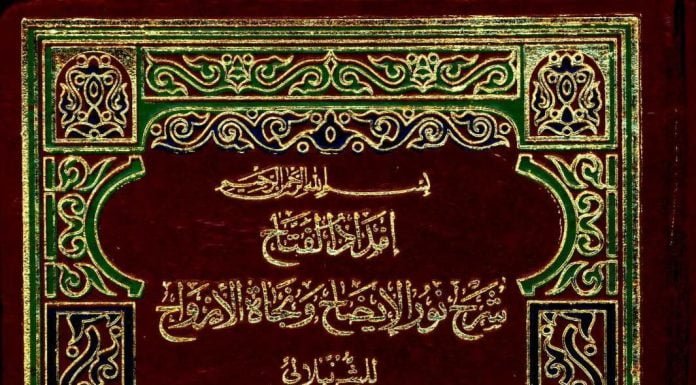 بسم الله الرحمن الرحيم
إمداد الفتاح
شرح نور الإيضاح ونجاة الأرواح
للشرنبلالي